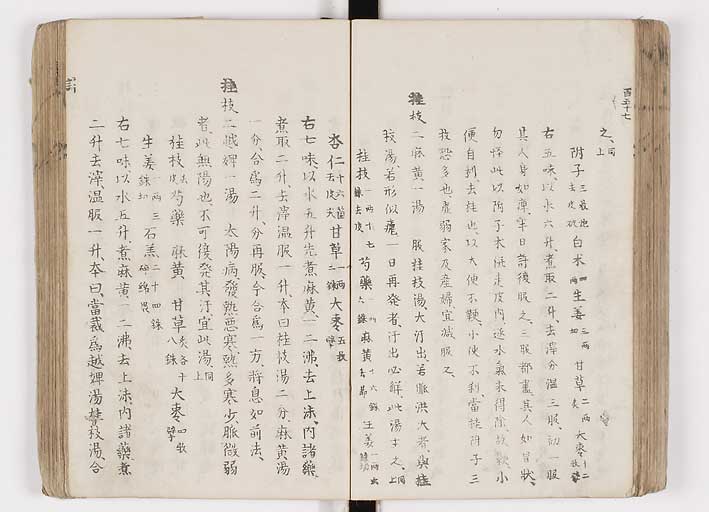 百五十七
之、同上
附子三最炮去皮破 白朮四両 生姜三両切 甘草二両炙 大棗十二枚擘
右五味、以水六升、煮取二升、去滓分温三服、初一服
其人身如痺、半日許後服之、三服都盡、其人如冒狀、
勿怪、此以附子朮併走皮内、逐水氣未得除故軟小
便自利、去桂也、以大便不鞕、小便不利當桂附子三
枚恐多也、虛弱家及産婦宜減服之、
桂枝二麻黄一湯 服桂枝湯、大汗出、若脈洪大者、與桂
枝湯、若形似瘧、一日再発者、汗出必解、此湯主之、同上
桂枝一両十七銖去皮 芍薬一両六銖 麻黄十六銖去節 生姜一両六銖切
杏仁十六箇去皮尖 甘草一両二銖 大棗五枚擘
右七味、以水五升、先煮麻黄、一二沸、去上沫、内諸藥、
煮取二升、去滓温服一升、本曰桂枝湯二分、麻黄湯
一分、合爲二升、分再服、今合爲一方、將息如前法、
桂枝二越婢一湯 太陽病、發熱悪寒、熱多寒少、脈微弱
者、此無陽也、不可後発其汗、宜此湯、同上
桂枝去皮 芍薬 麻黄 甘草炙各十八銖 大棗四枚擘
生姜一両三銖切 石羔二十四銖碎綿畏
右七味、以水五升、煮麻黄、一二沸去上沫、内諸藥、煮
二升去滓、温服一升、本曰、當裁爲越婢湯桂枝湯、合